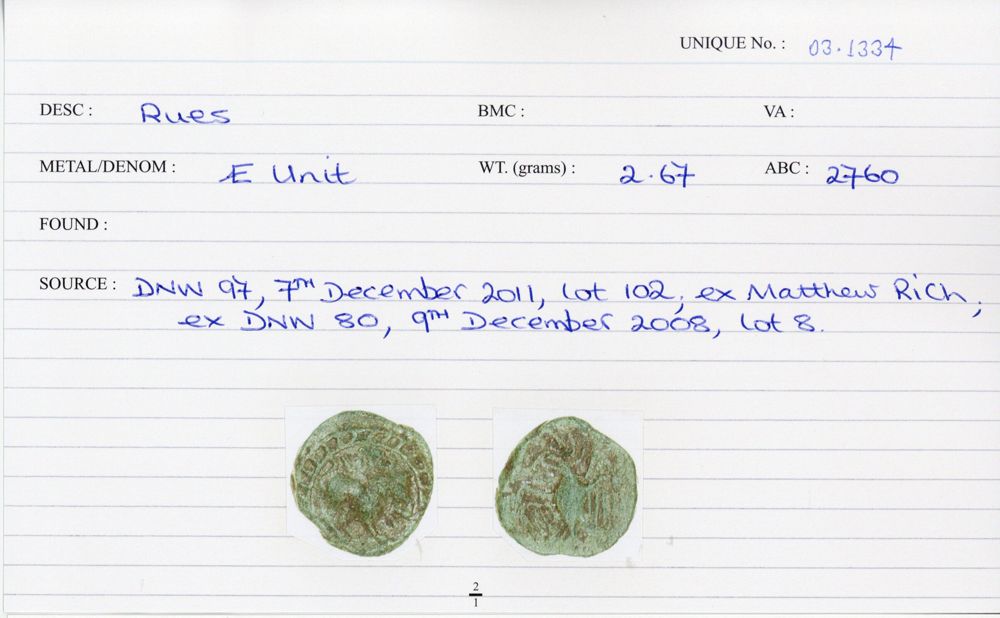 UNIQUE No. : 03.1334
DESC : Rues BMC : VA :
METAL/DENOM : Æ Unit WT. (grams) : 2.67 ABC : 2760
FOUND :
SOURCE : DNW 97, 7TH December 2011, lot 102, ex Matthew Rich,
ex DNW 80, 9TH December 2008, lot 8.
2
1